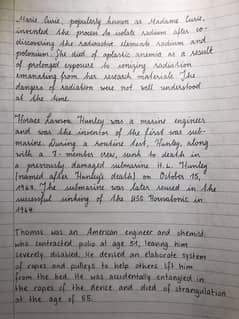 Marie Curie, popularly known as Madame Curie,
invented the process to isolate radium after co-
discovering the radioactive elements radium and
polonium. She died of aplastic anemia as a result
of prolonged exposure to ionizing radiation
emanating from her research materials. The
dangers of radiation were not well understood
at the time.
Horace Lawson Hunley was a marine engineer
and was the inventor of the first war sub-
marine. During a routine test, Hunley, along
with a 7-member crew, sunk to death in
a previously damaged submarine H. L. Hunley
(named after Hunley's death) on October 15,
1963. The submarine was later reused in the
successful sinking of the USS Housatonic in
1964.
Thomas was an American engineer and chemist,
who contracted polio at age 51, leaving him
severely disabled. He devised an elaborate system
of ropes and pulleys to help others lift him
from the bed. He was accidentally entangled in
the ropes of the device and died of strangulation
at the age of 55.